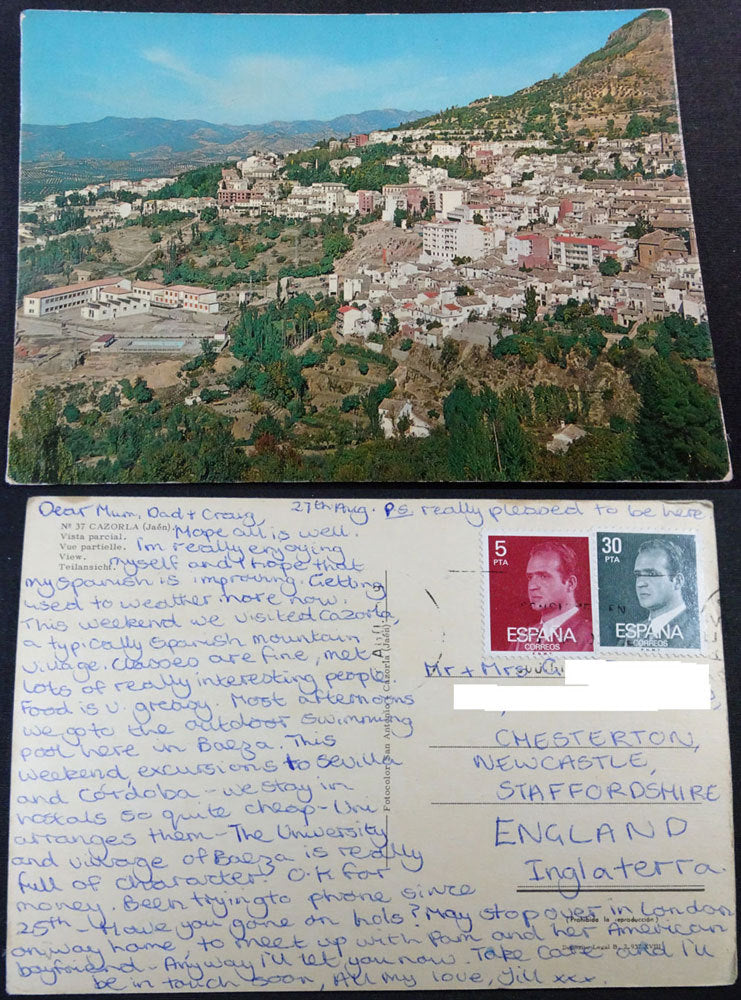 Dear Mum, Dad + Craig,
27th Aug. Ps really pleased to be here.
Nº 37 CAZORLA (Jaén).
Vista parcial.
Vue partielle.
View.
Teilansicht.
Hope all is well.
I'm really enjoying
myself and I hope that
my Spanish is improving. Getting
used to weather more now.
This weekend we visited Cazorla,
a typically Spanish mountain
village. Classes are fine, met
lots of really interesting people.
Food is v. greasy. Most afternoons
we go to the outdoor swimming
pool here in Baeza. This
weekend, excursions to Sevilla
and Córdoba - we stay in
hostals so quite cheap - Uni
arranges them - The University
and village of Baeza is really
full of character. O.K for
money. Been trying to phone since
25th - Have you gone on hols? May stop over in London
anyway home, to meet up with Pam and her American
boyfriend - Anyway I'll let you now. Take Care and I'll
be in touch soon, All my love, Jill xxx.
Fotocolor San Antonio - Cazorla (Jaén)
5
PTA
ESPAÑA
CORREOS
30
PTA
ESPAÑA
CORREOS
Mr + Mrs
CHESTERTON,
NEWCASTLE,
STAFFORDSHIRE
ENGLAND
Inglaterra.
(Prohibida la reproducción)